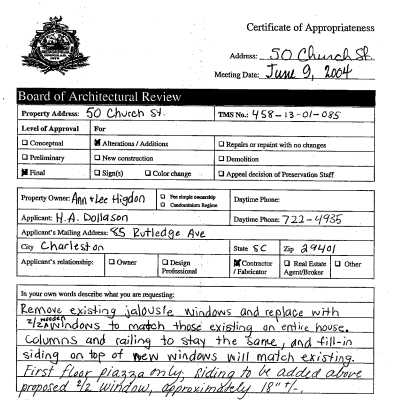 Certificate of Appropriateness
Address: 50 Church St.
Meeting Date: June 9, 2004
Board of Architectural Review
Property Address: 50 Church St. TMS No.: 458-13-01-085
Level of Approval For
☐ Conceptual ☒ Alterations / Additions ☐ Repairs or repaint with no changes
☐ Preliminary ☐ New construction ☐ Demolition
☒ Final ☐ Sign(s) ☐ Color change ☐ Appeal decision of Preservation Staff
Property Owner: Ann & Lee Higdon ☐ Fee simple ownership ☐ Condominium Regime Daytime Phone:
Applicant: H.A. DoMason Daytime Phone: 722-4935
Applicant's Mailing Address: 85 Rutledge Ave
City Charleston State SC Zip 29401
Applicant's relationship: ☐ Owner ☐ Design Professional ☒ Contractor / Fabricator ☐ Real Estate Agent/Broker ☐ Other
In your own words describe what you are requesting:
Remove existing jalousie windows and replace with
2/2 wooden windows to match those existing on entire house.
Columns and railing to stay the same, and fill-in
siding on top of new windows will match existing.
First floor piazza only, siding to be added above
proposed 2/2 window, approximately 18" +/-.